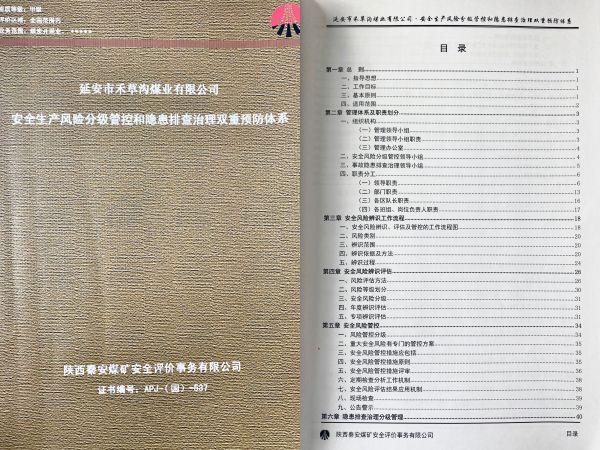 资质等级：甲级
评价区域：全国范围内
业务范围：煤炭开采业
延安市禾草沟煤业有限公司
安全生产风险分级管控和隐患排查治理双重预防体系
陕西秦安煤矿安全评价事务有限公司
证书编号：APJ-（国）-537
延安市禾草沟煤业有限公司·安全生产风险分级管控和隐患排查治理双重预防体系
目 录
第一章 总 则 1
一、指导思想 1
二、工作目标 1
三、基本原则 1
四、适用范围 2
第二章 管理体系及职责划分 3
一、组织机构 3
（一）管理领导小组 3
（二）管理领导小组职责 3
（三）管理办公室 4
二、安全风险分级管控领导小组 4
三、事故隐患排查治理领导小组 5
四、职责分工 6
（一）领导职责 6
（二）部门职责 13
（三）各区队长职责 16
（四）各班组、岗位负责人职责 17
第三章 安全风险辨识工作流程 18
一、安全风险辨识、评估及管控的工作流程图 18
二、风险类别 20
三、辨识范围 20
四、辨识依据及方法 20
五、辨识过程 24
第四章 安全风险辨识评估 26
一、风险评估方法 26
二、风险等级划分 30
三、安全风险分级 31
四、年度辨识评估 31
五、专项辨识评估 31
第五章 安全风险管控 34
一、风险管控分级 34
二、重大安全风险有专门的管控方案 34
三、安全风险管控措施应包括 35
四、安全风险管控措施原则 35
五、安全风险管控措施评审 36
六、定期检查分析工作机制 36
七、安全风险评估结果应用机制 38
八、现场检查 38
九、公告警示 39
第六章 隐患排查治理分级管理 40
陕西秦安煤矿安全评价事务有限公司
目录